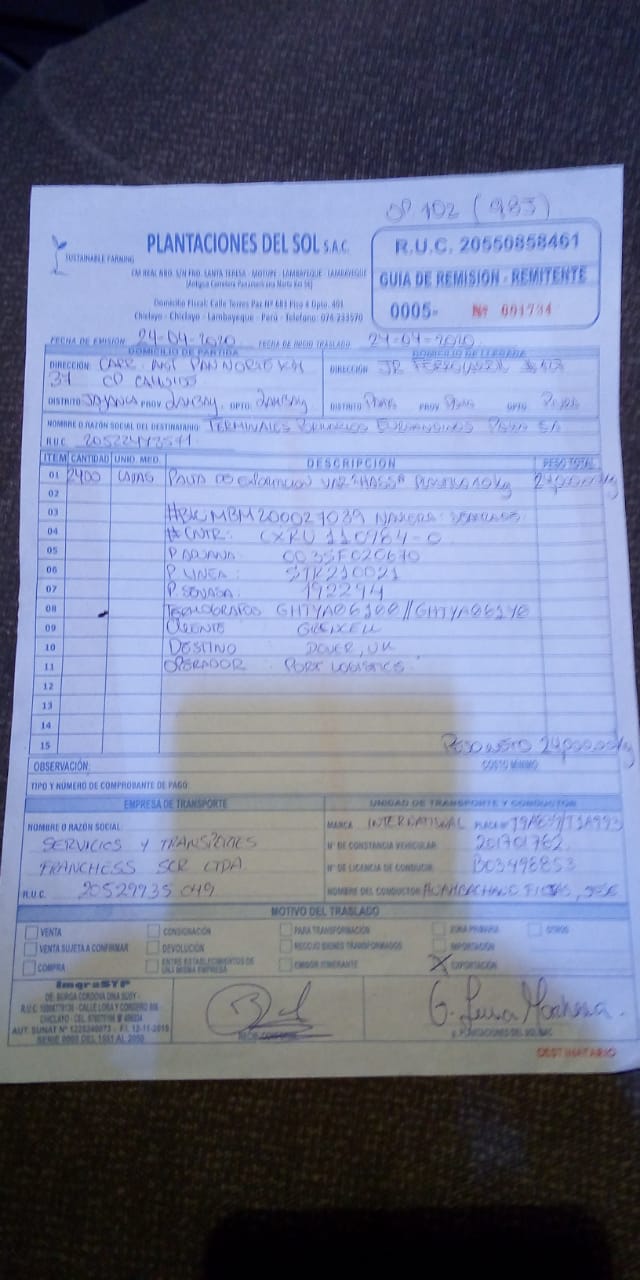 OP 102 (983)
SUSTAINABLE FARMING
PLANTACIONES DEL SOL S.A.C.
R.U.C. 20550858461
GUIA DE REMISION - REMITENTE
0005- Nº 001734
CAR REAL NRO. S/N FND. SANTA TERESA - MOTUPE - LAMBAYEQUE - LAMBAYEQUE
(Antigua Carretera Panamericana Norte Km 36)
Domicilio Fiscal: Calle Torres Paz Nº 681 Piso 4 Dpto. 401
Chiclayo - Chiclayo - Lambayeque - Perú - Telefono: 076 233570
FECHA DE EMISION: 24-04-2020 FECHA DE INICIO TRASLADO: 24-04-2020
DOMICILIO DE PARTIDA
DOMICILIO DE LLEGADA
DIRECCIÓN: CARR. ANT PAN NORTE KM
37 CP
DISTRITO JAYANCA PROV. LAMBAY. DPTO. LAMBAY
DIRECCIÓN JR FERROCARRIL
DISTRITO PAITA PROV PAITA DPTO. PIURA
NOMBRE O RAZÓN SOCIAL DEL DESTINATARIO TERMINALES PORTUARIOS EUROANDINOS PAITA SA
R.U.C. 20522473571
ITEM CANTIDAD UNID. MED. DESCRIPCION PESO TOTAL
01 2400 CAJAS PALTA DE EXPORTACION VAR "HASS" PLASTICO 10kg 24,000.00 kg
02
03 #BK MBM200027039 NAVIERA: SEATRADE
04 # CNTR: CXRU 110764-0
05 P. ADUANA: 0035F020670
06 P. LINEA: STR210021
07 P. SENASA: 192294
08 TERMOGRAFOS GHTYA06100//GHTYA06140
09 CLIENTE GREENCELL
10 DESTINO DOVER, UK
11 OPERADOR PORX LOGISTICS
12
13
14
15 PESO NETO 24,000.00 kg
OBSERVACIÓN:
COSTO MINIMO
TIPO Y NÚMERO DE COMPROBANTE DE PAGO:
EMPRESA DE TRANSPORTE
UNIDAD DE TRANSPORTE Y CONDUCTOR
NOMBRE O RAZÓN SOCIAL
SERVICIOS Y TRANSPORTES
FRANCHESS SCR LTDA
R.U.C. 20529935 049
MARCA INTERNATIONAL PLACA Nº
Nº DE CONSTANCIA VEHICULAR 201701762
Nº DE LICENCIA DE CONDUCIR B03498853
NOMBRE DEL CONDUCTOR HUAMBACHANO, JOSE
MOTIVO DEL TRASLADO
VENTA
CONSIGNACIÓN
PARA TRANSFORMACIÓN
ZONA PRIMARIA
OTROS
VENTA SUJETA A CONFIRMAR
DEVOLUCIÓN
RECOJO BIENES TRANSFORMADOS
IMPORTACIÓN
COMPRA
ENTRE ESTABLECIMIENTOS DE
UNA MISMA EMPRESA
EMISOR ITINERANTE
X EXPORTACIÓN
ImgraSYP
DE: BURGA CORDOVA DINA SUSY
CALLE LORA Y CORDERO
AUT. SUNAT Nº 1228240073 - F.I. 12-11-2019
SERIE 0005 DEL 1551 AL 2050
RECIBI CONFORME
P. PLANTACIONES DEL SOL SAC
DESTINATARIO